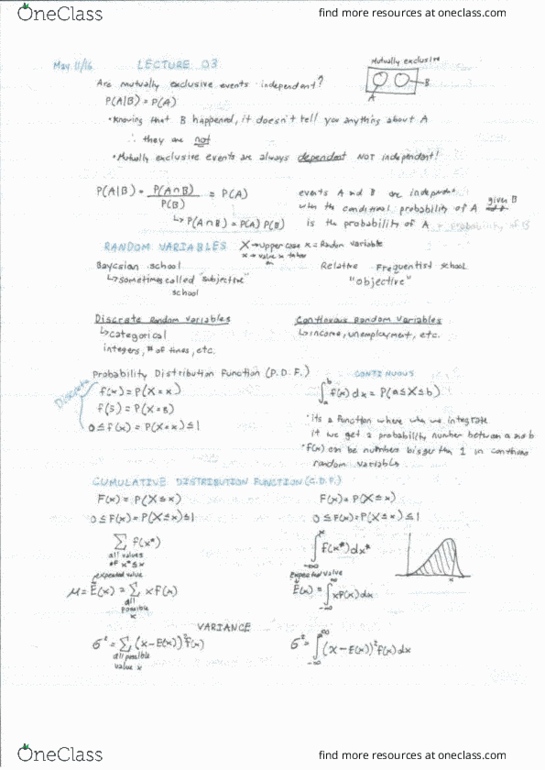 OneClass
find more resources at oneclass.com
May 11/16
LECTURE 03
Mutually exclusive
A
B
Are mutually exclusive events independent?
P(A|B) = P(A)
• Knowing that B happened, it doesn't tell you anything about A
∴ they are not
• Mutually exclusive events are always dependent NOT independent!
P(A|B) = P(A∩B) / P(B) = P(A)
↳ P(A∩B) = P(A) P(B)
events A and B are independent
when the conditional probability of A given B
is the probability of A
RANDOM VARIABLES
X → uppercase X = Random Variable
x → value X takes on
Bayesian school
↳ sometimes called "subjective" school
Relative Frequentist school
"objective"
Discrete Random Variables
↳ categorical
integers, # of times, etc.
Continuous Random Variables
↳ income, unemployment, etc.
Probability Distribution Function (P.D.F.)
Discrete
f(x) = P(X = x)
0 ≤ f(x) = P(X=x) ≤ 1
CONTINUOUS
∫ₐᵇ f(x) dx = P(a ≤ X ≤ b)
• its a function where when we integrate
it we get a probability number between a and b
• f(x) can be numbers bigger than 1 in continous
random variables
CUMULATIVE DISTRIBUTION FUNCTION (C.D.F.)
F(x) = P(X ≤ x)
0 ≤ F(x) = P(X ≤ x) ≤ 1
∑ f(x*)
all values
of x* ≤ x
expected value
μ = E(x) = ∑ x f(x)
all
possible
x
F(x) = P(X ≤ x)
0 ≤ F(x) = P(X ≤ x) ≤ 1
∫ f(x*) dx*
Expected value
E(x) = ∫ x f(x) dx
VARIANCE
σ² = ∑ (x − E(x))² f(x)
all possible
value x
σ² = ∫ (x − E(x))² f(x) dx
OneClass
find more resources at oneclass.com